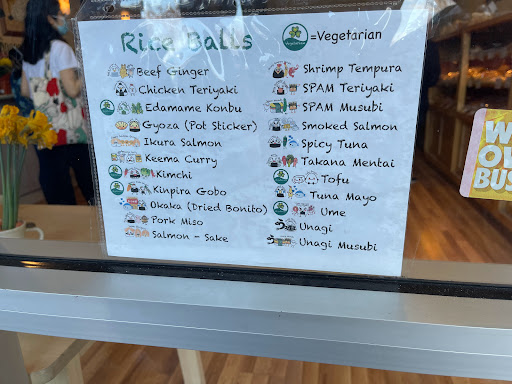 Rice Balls
Vegetarian
=Vegetarian
Beef Ginger
Chicken Teriyaki
Edamame Konbu
Gyoza (Pot Sticker)
Ikura Salmon
Keema Curry
Kimchi
Kinpira Gobo
Okaka (Dried Bonito)
Pork Miso
Salmon - Sake
Shrimp Tempura
SPAM Teriyaki
SPAM Musubi
Smoked Salmon
Spicy Tuna
Takana Mentai
Tofu
Tuna Mayo
Ume
Unagi
Unagi Musubi
W
OW
BUS